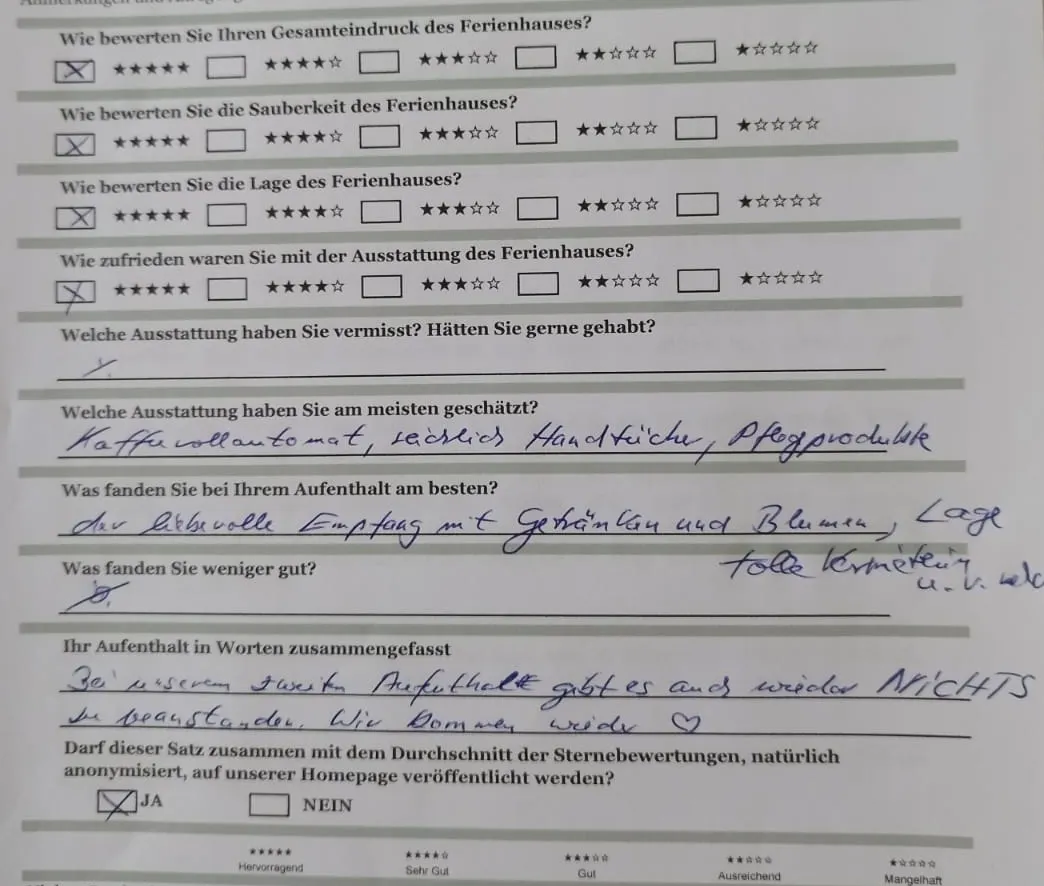 Wie bewerten Sie Ihren Gesamteindruck des Ferienhauses?
☒ ★★★★★ ☐ ★★★★☆ ☐ ★★★☆☆ ☐ ★★☆☆☆ ☐ ★☆☆☆☆
Wie bewerten Sie die Sauberkeit des Ferienhauses?
☒ ★★★★★ ☐ ★★★★☆ ☐ ★★★☆☆ ☐ ★★☆☆☆ ☐ ★☆☆☆☆
Wie bewerten Sie die Lage des Ferienhauses?
☒ ★★★★★ ☐ ★★★★☆ ☐ ★★★☆☆ ☐ ★★☆☆☆ ☐ ★☆☆☆☆
Wie zufrieden waren Sie mit der Ausstattung des Ferienhauses?
☒ ★★★★★ ☐ ★★★★☆ ☐ ★★★☆☆ ☐ ★★☆☆☆ ☐ ★☆☆☆☆
Welche Ausstattung haben Sie vermisst? Hätten Sie gerne gehabt?
Welche Ausstattung haben Sie am meisten geschätzt?
Kaffeevollautomat, reichlich Handtücher, Pflegprodukte
Was fanden Sie bei Ihrem Aufenthalt am besten?
der liebevolle Empfang mit Getränken und Blumen, Lage
tolle Vermieterin
u. v.
Was fanden Sie weniger gut?
Ihr Aufenthalt in Worten zusammengefasst
Bei unserem zweiten Aufenthalt gibt es auch wieder NICHTS
zu beanstanden. Wir kommen wieder ♡
Darf dieser Satz zusammen mit dem Durchschnitt der Sternebewertungen, natürlich
anonymisiert, auf unserer Homepage veröffentlicht werden?
☒ JA ☐ NEIN
★★★★★ ★★★★☆ ★★★☆☆ ★★☆☆☆ ★☆☆☆☆
Hervorragend Sehr Gut Gut Ausreichend Mangelhaft